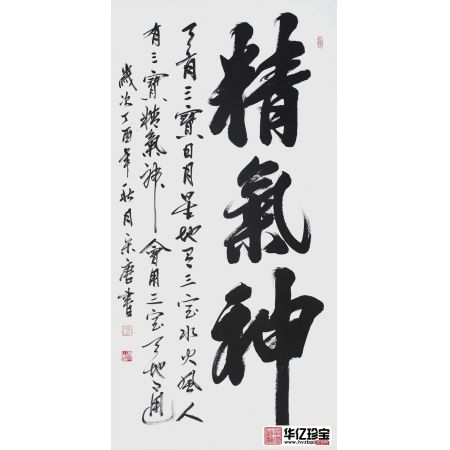 精氣神
天有三寶日月星地有三宝水火風人
有三寶精氣神會用三宝天地通
歲次丁酉年秋月唐書
华亿珍宝